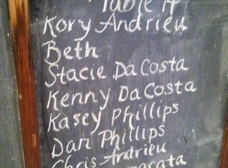 Table 14
Kory Andrieu
Beth
Stacie DaCosta
Kenny DaCosta
Kasey Phillips
Dan Phillips
Chris Andrieu